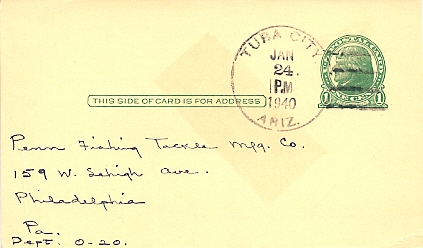 TUBA CITY.
JAN
24.
1 PM
1940
ARIZ.
1 1
THIS SIDE OF CARD IS FOR ADDRESS
Penn Fishing Tackle Mfg. Co.
159 W. Lehigh Ave.
Philadelphia
Pa.
Dept. O-20.